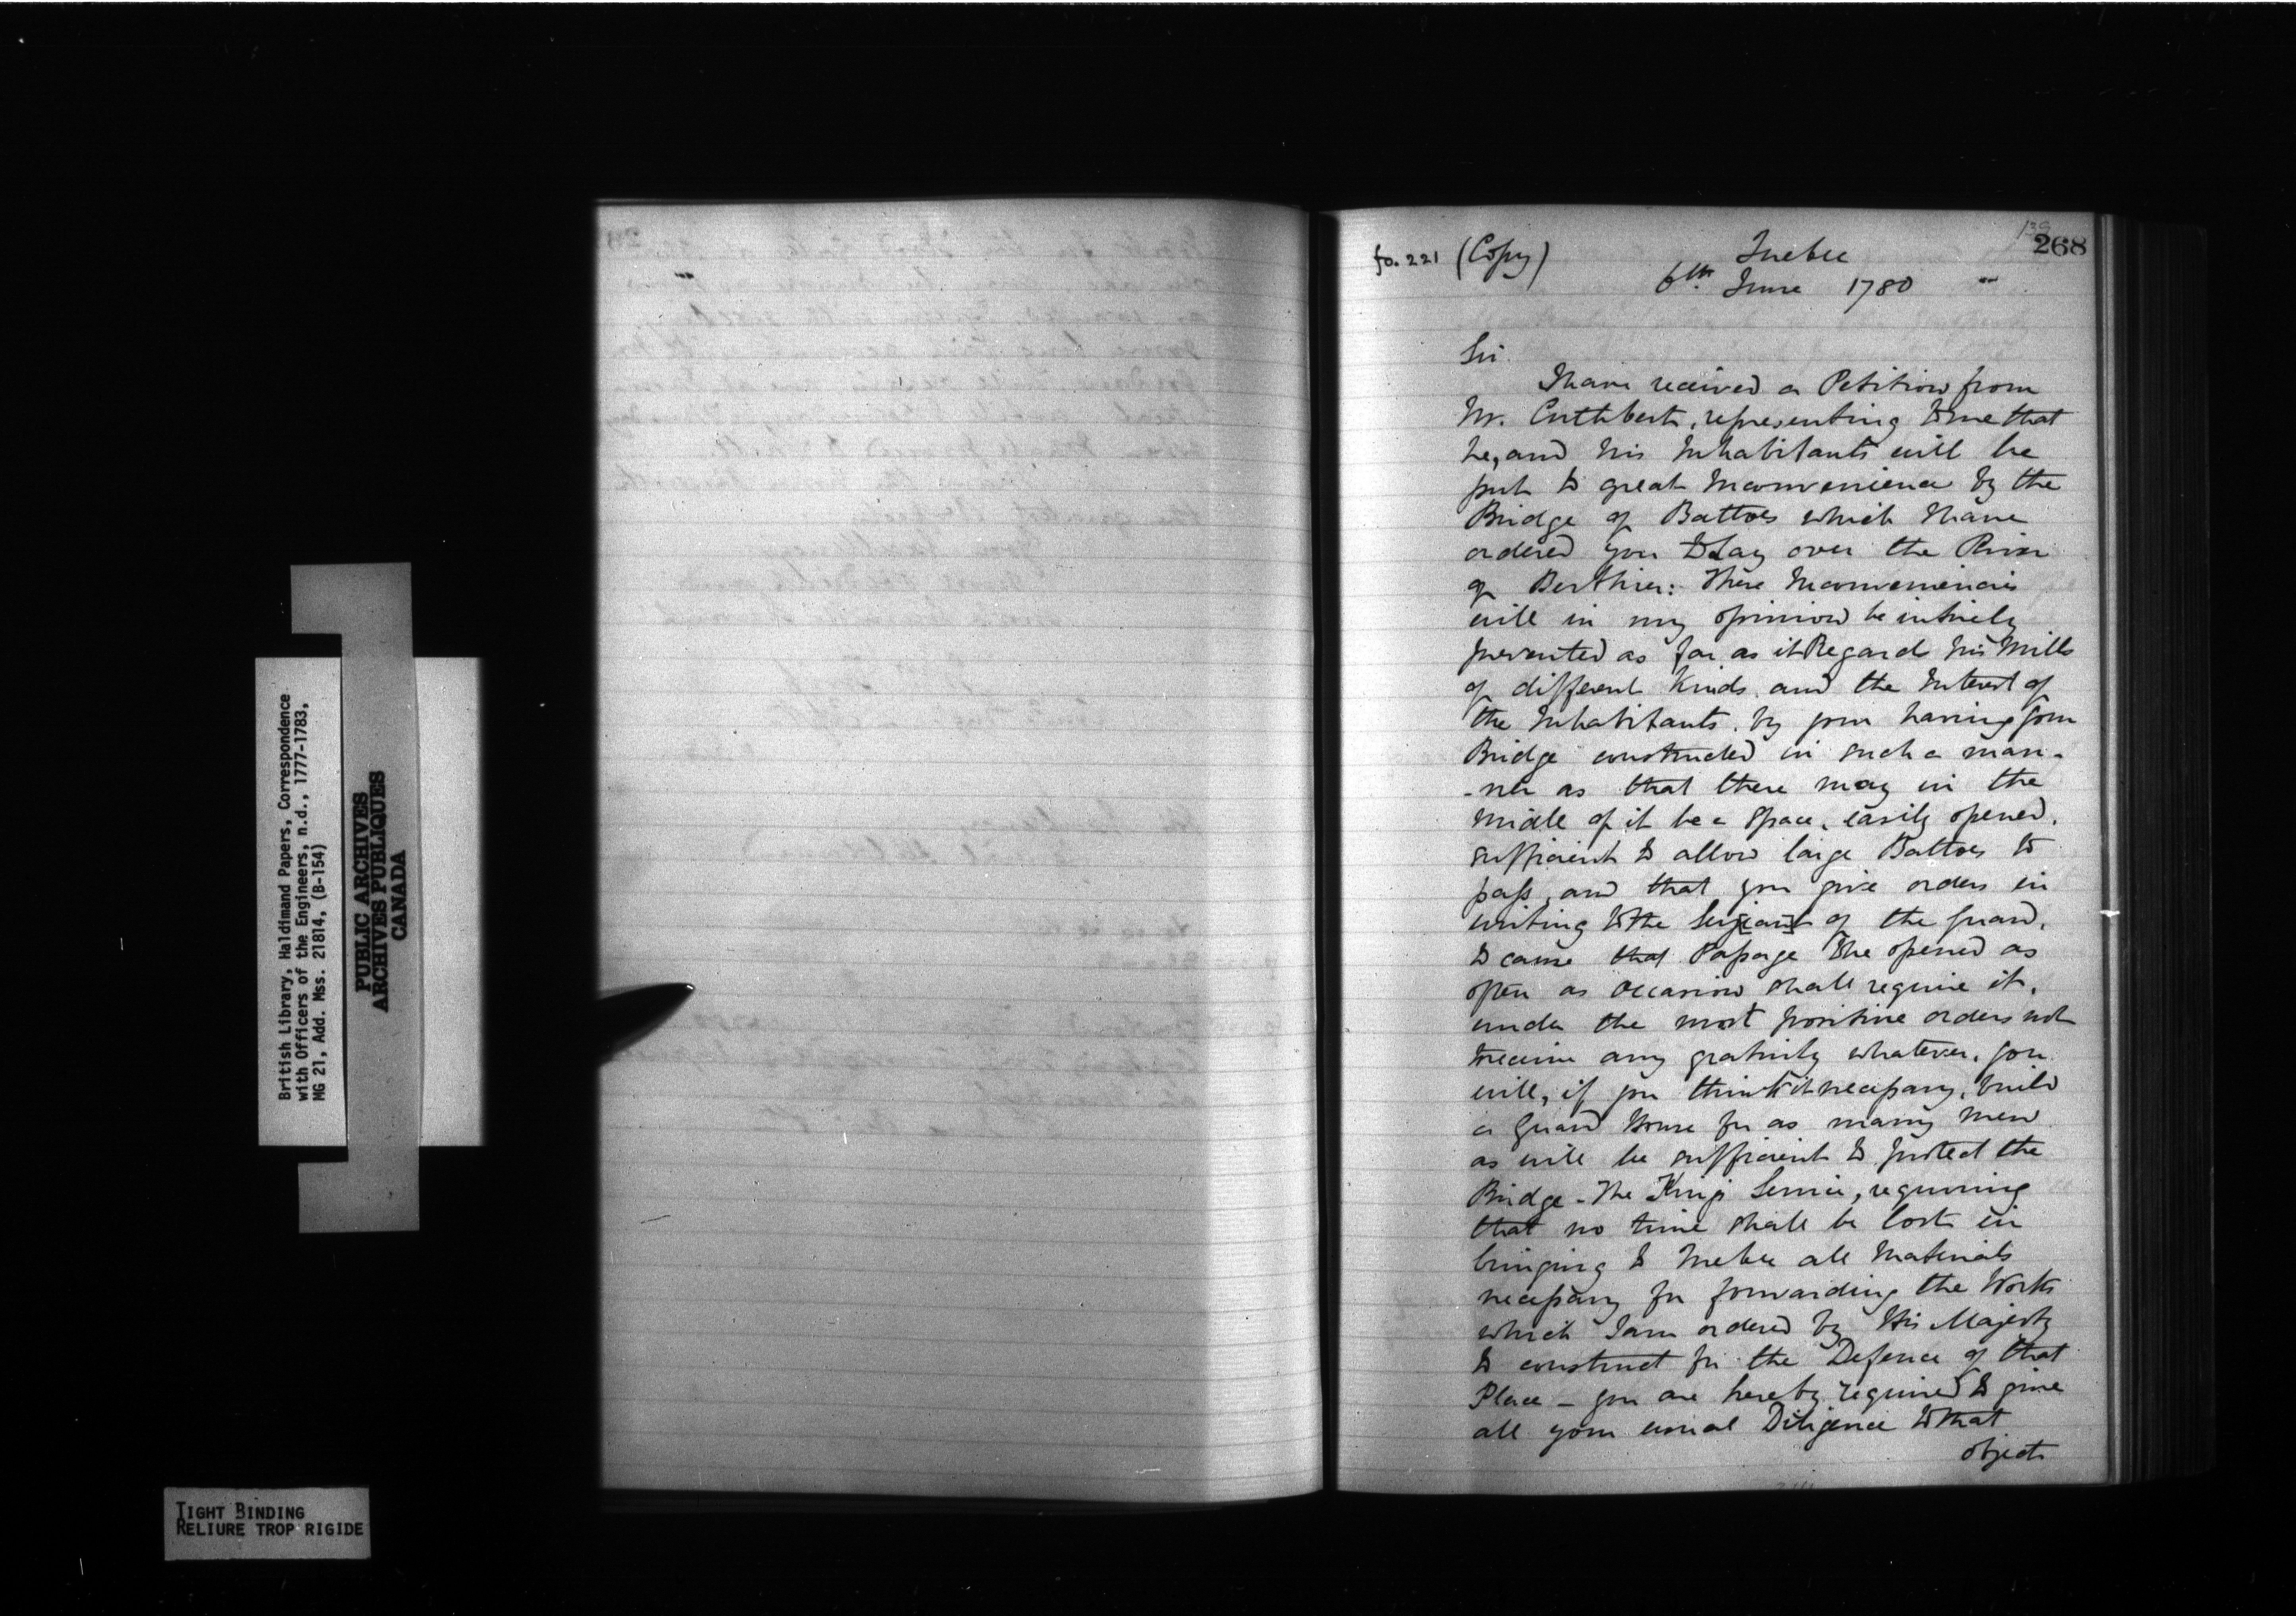 British Library, Haldimand Papers, Correspondence
with Officers of the Engineers, n.d., 1777-1783,
MG 21, Add. Mss. 21814, (B-154)
PUBLIC ARCHIVES
ARCHIVES PUBLIQUES
CANADA
TIGHT BINDING
RELIURE TROP RIGIDE
268
fo. 221 (Copy) Quebec
6th June 1780
Sir.
I have received a Petition from
Mr. Cuthbert, representing to me that
he, and his Inhabitants will be
put to great Inconvenience by the
Bridge of Battoes which I have
ordered you to lay over the River
of Berthier: These Inconveniencies
will in my opinion be intirely
prevented as far as it Regards his Mills
of different Kinds, and the Interest of
the Inhabitants, by your having your
Bridge constructed in such a man-
-ner as that there may in the
Midle of it be a Space, easily opened,
sufficient to allow large Battoes to
pass, and that you give orders in
writing to the Serjeant of the Guard,
to cause that Passage to be opened as
often as occasion shall require it,
under the most positive orders not
to receive any gratuity whatever, you
will, if you think it necessary, build
a Guard House for as many men
as will be sufficient to protect the
Bridge - The King's Service, requiring
that no time shall be lost in
bringing to Quebec all Materials
necessary for forwarding the Works
which I am ordered by His Majesty
to construct for the Defence of that
Place - you are hereby required to give
all your usual Diligence to that
object